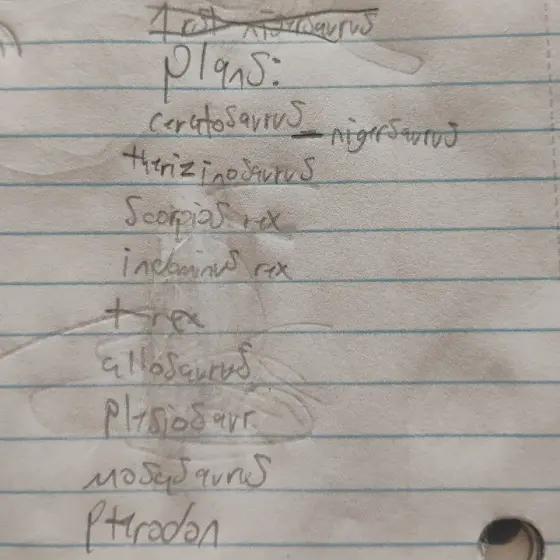 1rst nigersaurus
plans:
ceratosaurus - nigersaurus
therizinosaurus
Scorpios rex
indominus rex
t rex
allosaurus
plesiosaur
mosasaurus
pteradon